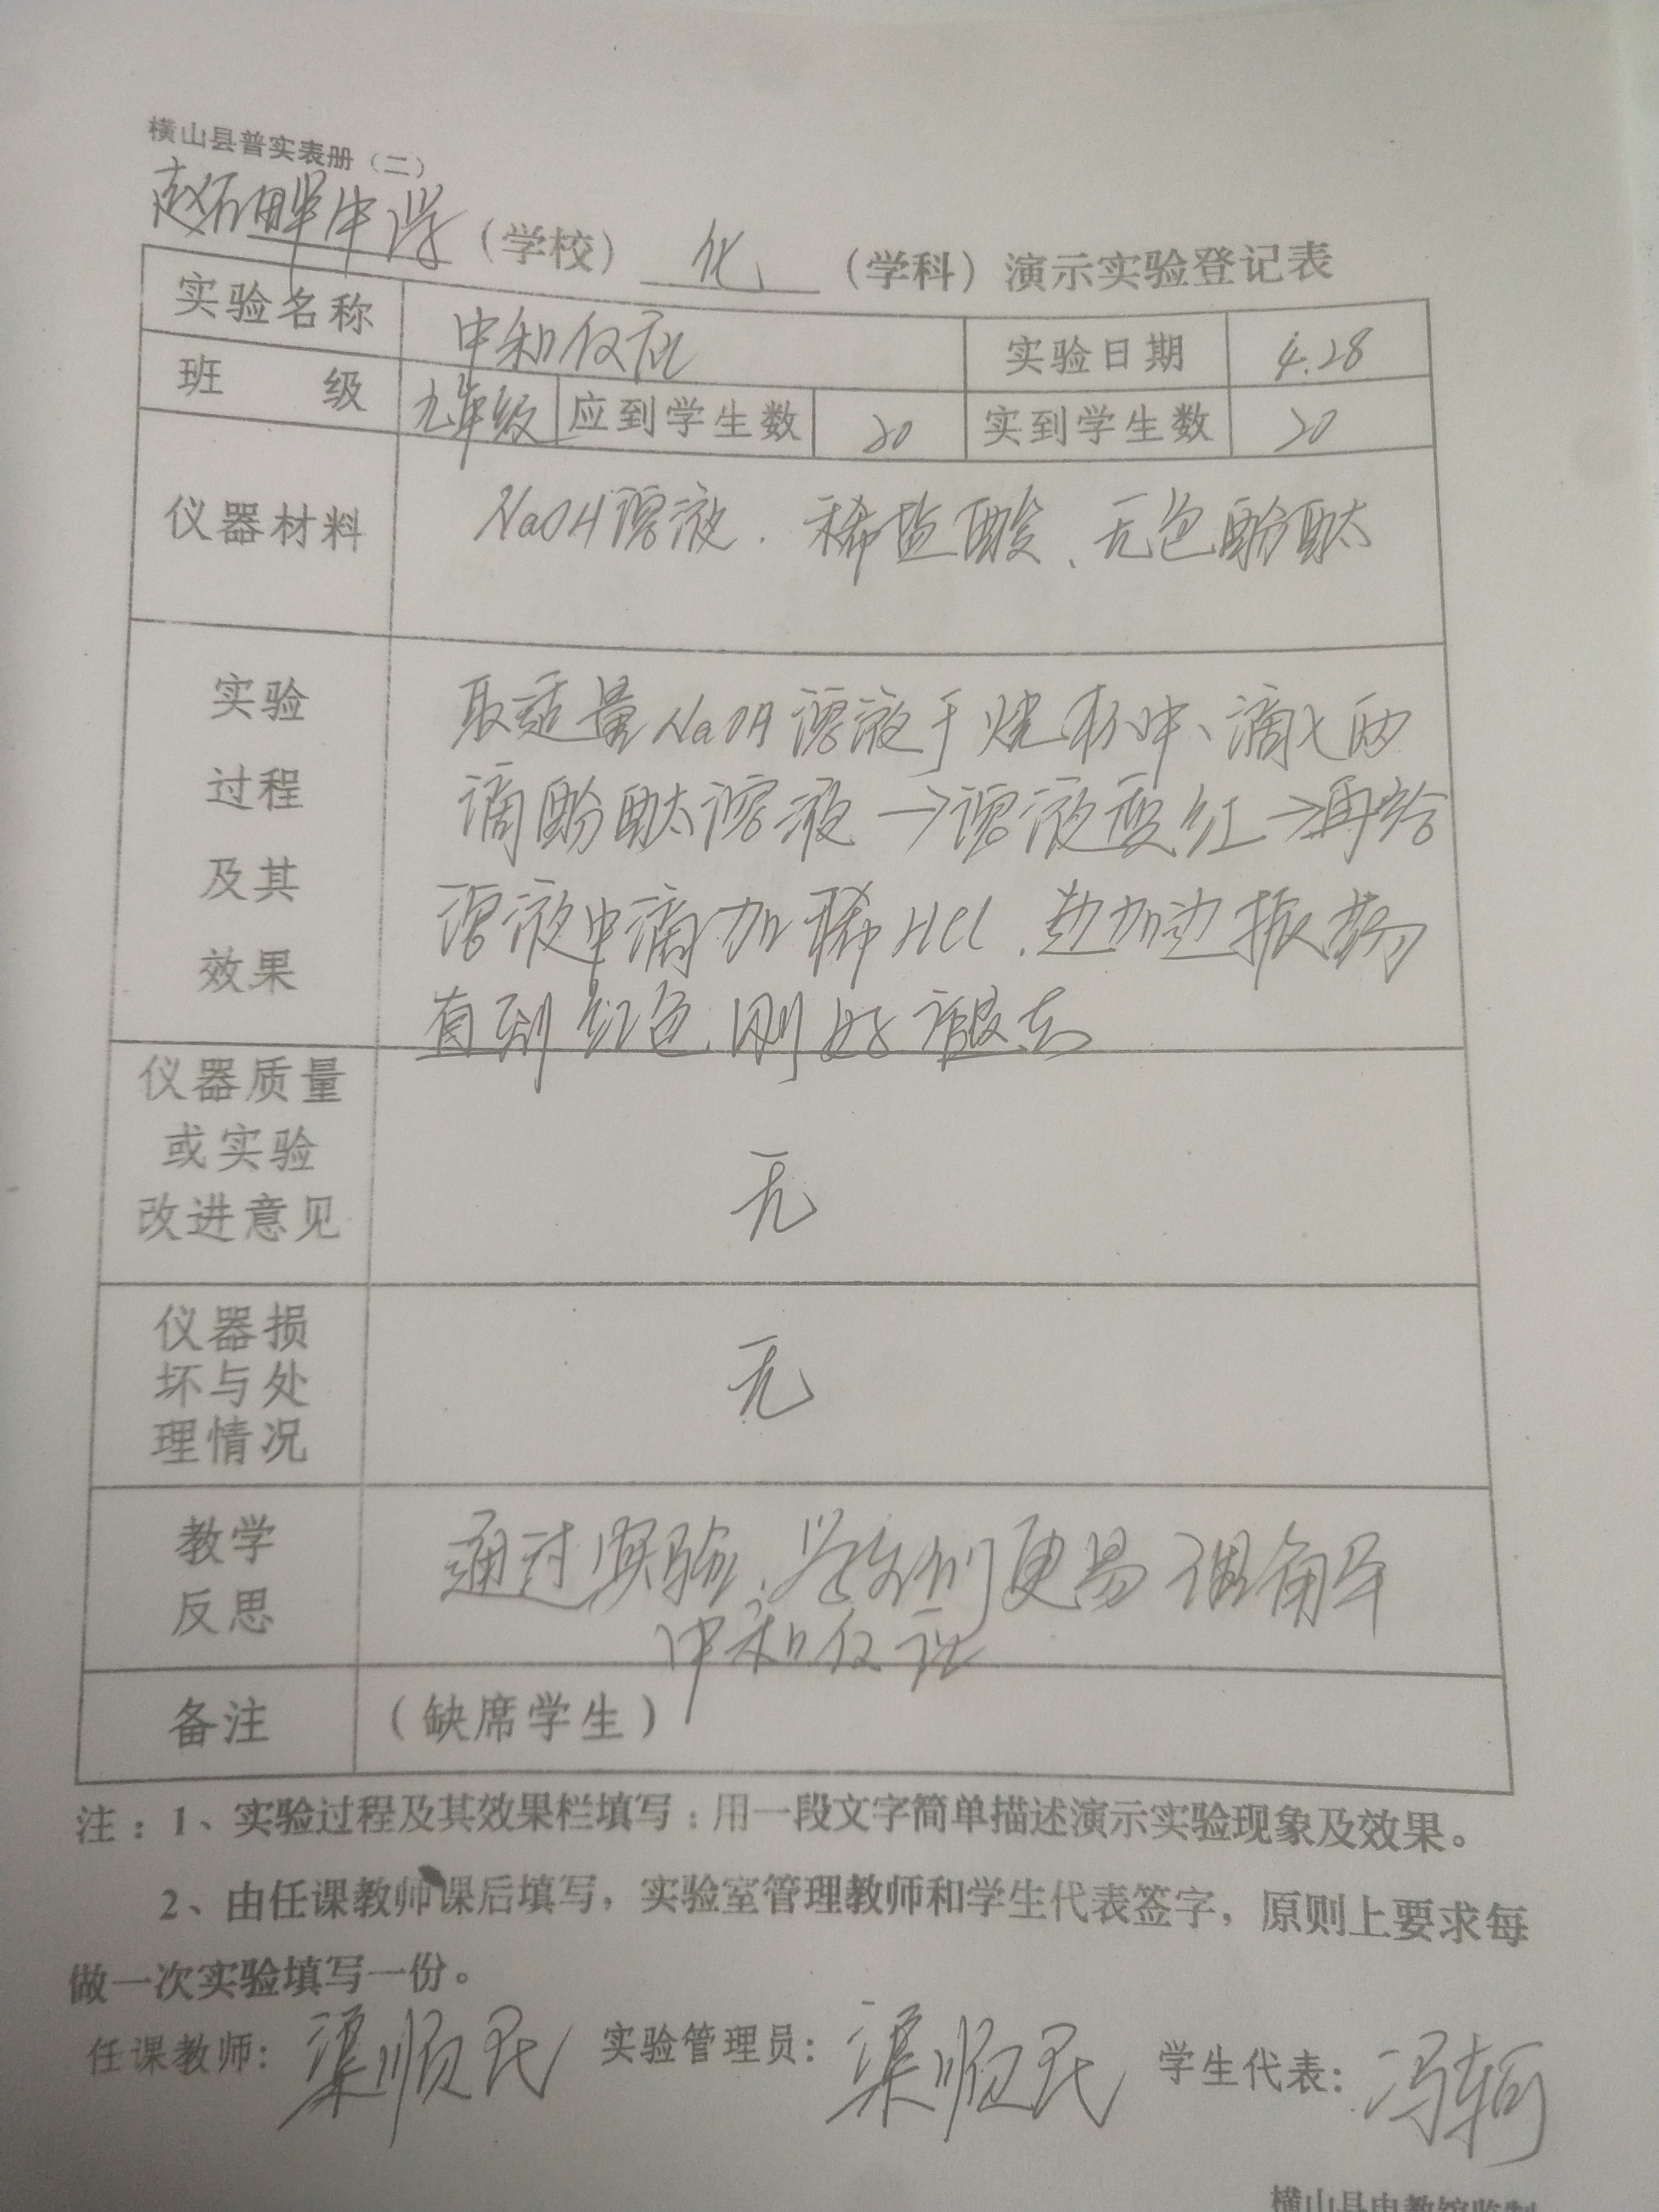 横山县普实表册（二）
赵石畔中学（学校） 化 （学科）演示实验登记表
实验名称 中和反应 实验日期 4.28
班 级 九年级 应到学生数 20 实到学生数 20
仪器材料 NaOH溶液、稀盐酸、无色酚酞
实验 取适量NaOH溶液于烧杯中、滴入两
过程 滴酚酞溶液→溶液变红→再给
及其 溶液中滴加稀HCl、边加边振荡
效果 直到红色刚好褪去
仪器质量
或实验 无
改进意见
仪器损
坏与处 无
理情况
教学 通过实验，学生们更易理解
反思 中和反应
备注 （缺席学生）
注：1、实验过程及其效果栏填写：用一段文字简单描述演示实验现象及效果。
2、由任课教师课后填写，实验室管理教师和学生代表签字，原则上要求每
做一次实验填写一份。
任课教师：渠顺民 实验管理员：渠顺民 学生代表：冯轲
横山县电教馆监制